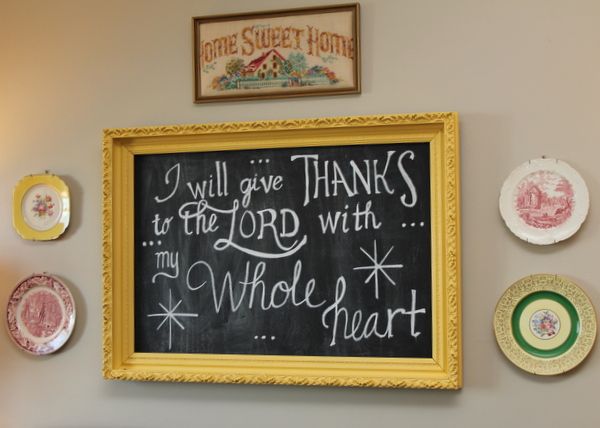 HOME SWEET HOME
... I will give THANKS
to the LORD with ...
... my Whole heart
...